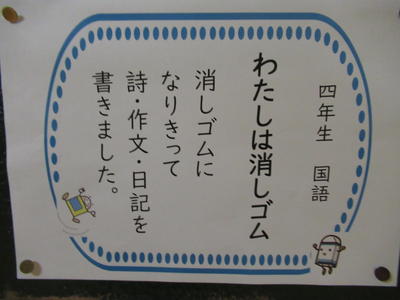 四年生 国語
わたしは消しゴム
消しゴムに
なりきって
詩・作文・日記を
書きました。